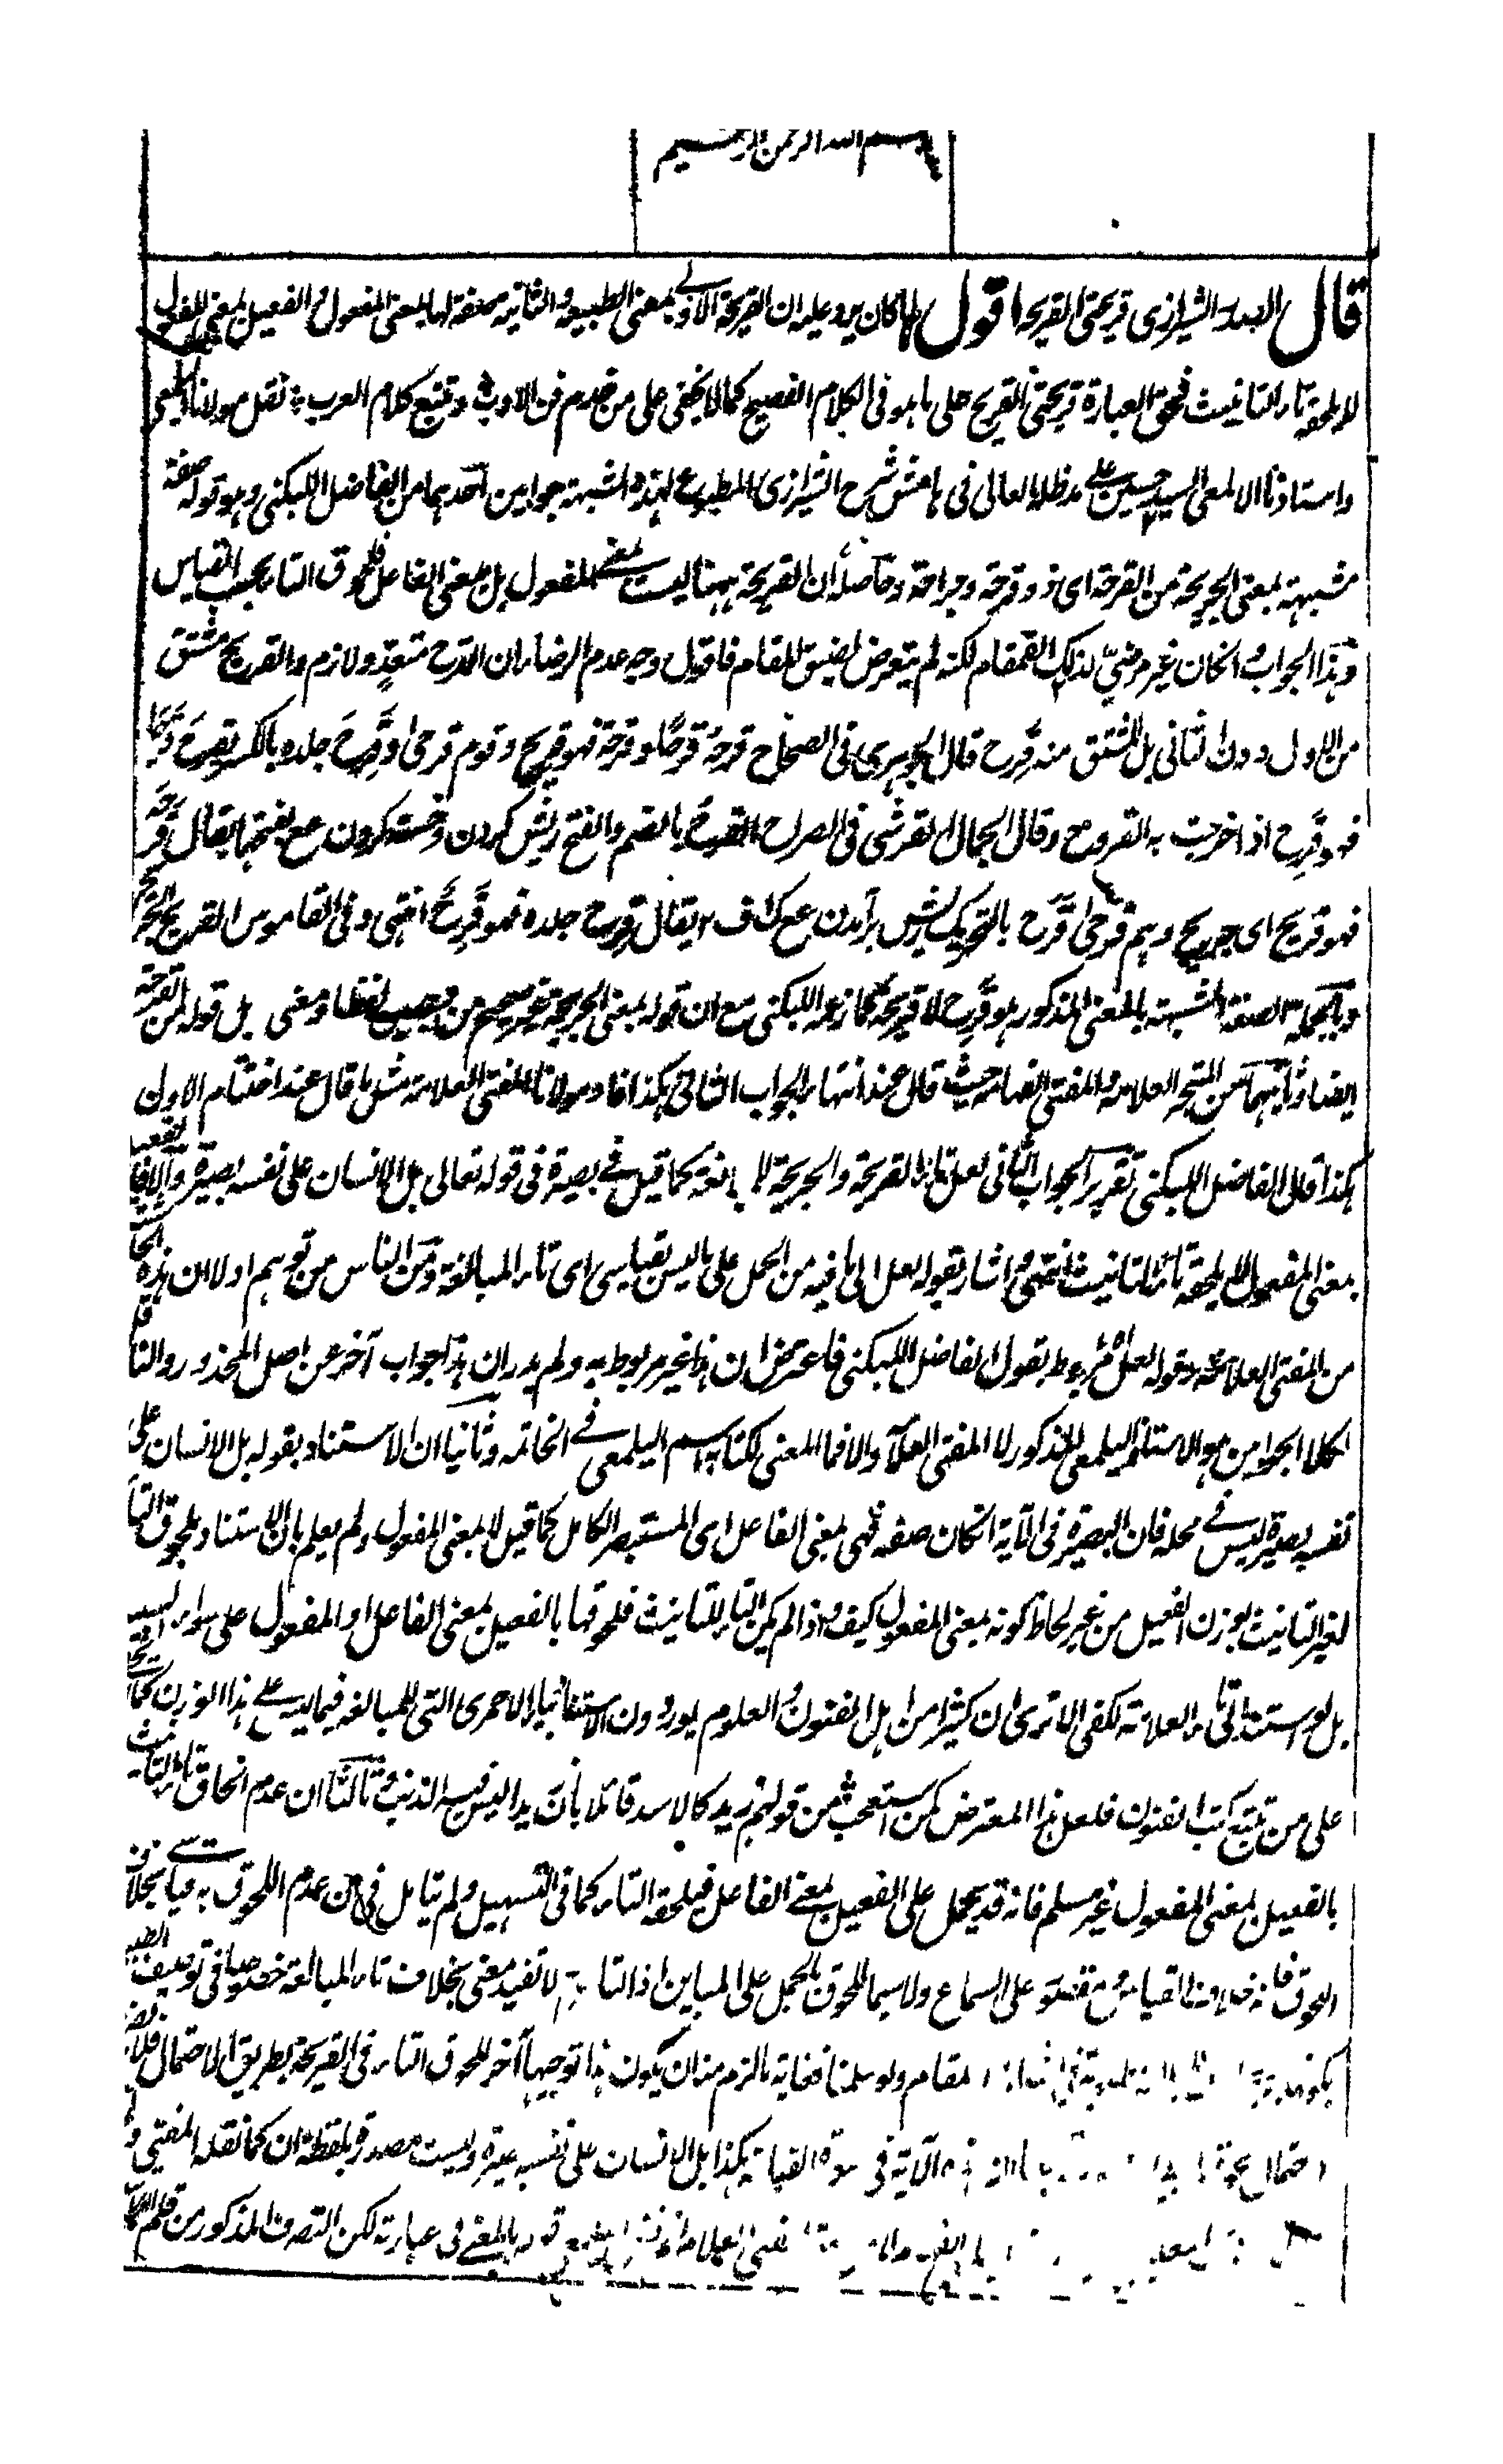 بسم الله الرحمن الرحيم
قال الصدر الشيرازى قريحتى القريحة اقول لما كان يرد عليه ان القريحة الاولى بمعنى الطبيعة والثانية صفة لها بمعنى المفعول والفعيل بمعنى المفعول
لا يلحقه تاء التانيث فحق العبارة قريحتى القريح على ما هو فى الكلام الفصيح كما لا يخفى على من خدم فن الادب وتتبع كلام العرب نقل مولانا
واستاذنا الالمعى السيد حسين على مد ظله العالى فى هامش شرح الشيرازى المطبوع لهذه الشبهة جوابين احدهما من الفاضل اللبكنى وهو قوله صفة
مشبهة بمعنى الجريحة من القرحة اى ذو قرحة وجراحة وحاصله ان القريحة ههنا ليست بمعنى المفعول بل بمعنى الفاعل فلحوق التاء بحسب القياس
وهذا الجواب وانكان غير مرضى لذلك القمقام لكنه لم يتعرض لضيق المقام فاقول وجه عدم الرضاء ان القرح متعد ولازم والقريح مشتق
من الاول دون الثانى بل المشتق منه قرح قال الجوهرى فى الصحاح قرحه قرحا وقرحة فهو قريح وقوم قرحى وقرح جلده بالكسر يقرح قرحا
فهو قرح اذا خرجت به القروح وقال الجمال القرشى فى الصراح القرح بالضم والفتح ريش كردن وخسته كردن ع بفتحها يقال قرحه
فهو قريح اى جريح وهم قرحى قرح بالتحريك ريش برآمدن ع ك ف يقال قرح جلده فهو قرح انتهى وفى القاموس القريح الجريح
وبالجملة الصفة المشبهة بالمعنى المذكور هو قرح لا قريحة كما زعمه اللبكنى مع ان قوله بمعنى الجريحة غير صحيح من وجهين لفظا ومعنى بل قوله من القرحة
ايضا وثانيهما من المتبحر العلامة والمفتى الفهامة حيث قال عند انتهاء الجواب الثانى هكذا افاد مولانا المفتى العلامة مثل ما قال عند اختتام الاول
هكذا قال الفاضل اللبكنى تقرير الجواب الثانى لعل تاء القريحة والجريحة للمبالغة كما قيل فى بصيرة فى قوله تعالى بل الانسان على نفسه بصيرة والا فالفعيل
بمعنى المفعول لا يلحقه تاء التانيث انتهى واشار بقوله لعل الى ما فيه من الحمل على ما ليس بقياسى اى تاء المبالغة ومن الناس من توهم اولا ان هذه
من المفتى العلامة وقوله لعل مربوط بقول الفاضل اللبكنى فاعترض ان هذا غير مربوط به ولم يدر ان هذا جواب آخر عن اصل المحذور والناقل
لكلا الجوابين هو الاستاذ اليلمعى المذكور لا المفتى العلامة والا فما المعنى لكتابة اسم اليلمعى فى الخاتمة وثانيا ان الاستناد بقوله بل الانسان على
نفسه بصيرة ليس فى محله فان البصيرة فى الآية انكان صفة فهى بمعنى الفاعل اى المستبصر الكامل كما قيل لا بمعنى المفعول ولم يعلم بان الاستناد بلحوق التاء
لغير التانيث بوزن الفعيل من غير لحاظ كونه بمعنى المفعول كيف واذا لم يكن التاء للتانيث فلحوقها بالفعيل بمعنى الفاعل او المفعول على سواء
بل لو استند بتاء العلامة لكفى الا ترى ان كثيرا من اهل الفنون والعلوم يوردون
على من تتبع كتب الفنون فلعل هذا المعترض كمن استعجب من قولهم زيد كالاسد قائلا بان زيدا ليس فيه الذنب وثالثا ان عدم الحاق تاء التانيث
بالفعيل بمعنى المفعول غير مسلم فانه قد يحمل على الفعيل بمعنى الفاعل فيلحقه التاء كما فى التسهيل ولم يتامل فى ان عدم اللحوق به قياسى بخلاف
اللحوق فانه خلاف القياس مقصور على السماع ولا سيما اللحوق بالحمل على المباين اذ التاء لا تفيد معنى بخلاف تاء المبالغة خصوصا فى توصيف
المقام ولو سلمنا فغاية ما لزم منه ان يكون هذا توجيها آخر للحوق التاء فى القريحة بطريق الاحتمال
الآية فى سورة القيامة هكذا بل الانسان على نفسه بصيرة وليست مصدرة بلفظة ان كما نقله المفتى
المفتى العلامة فى عبارته لكن التصرف المذكور من قلم